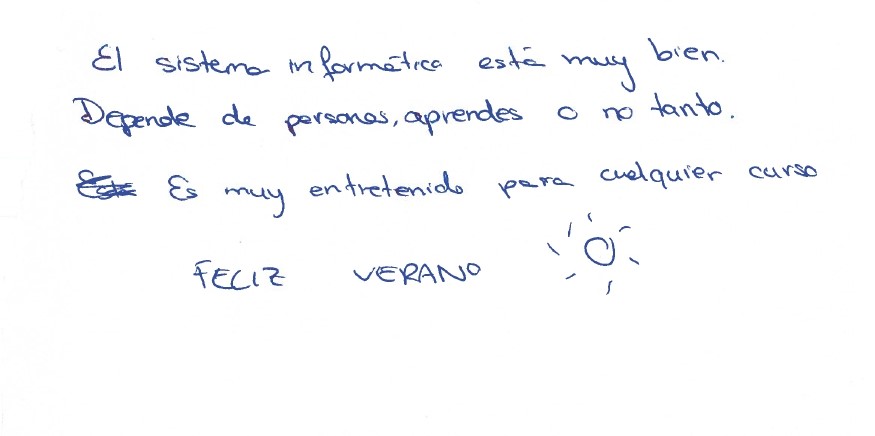 El sistema informática está muy bien.
Depende de personas, aprendes o no tanto.
Es muy entretenido para cualquier curso
FELIZ VERANO